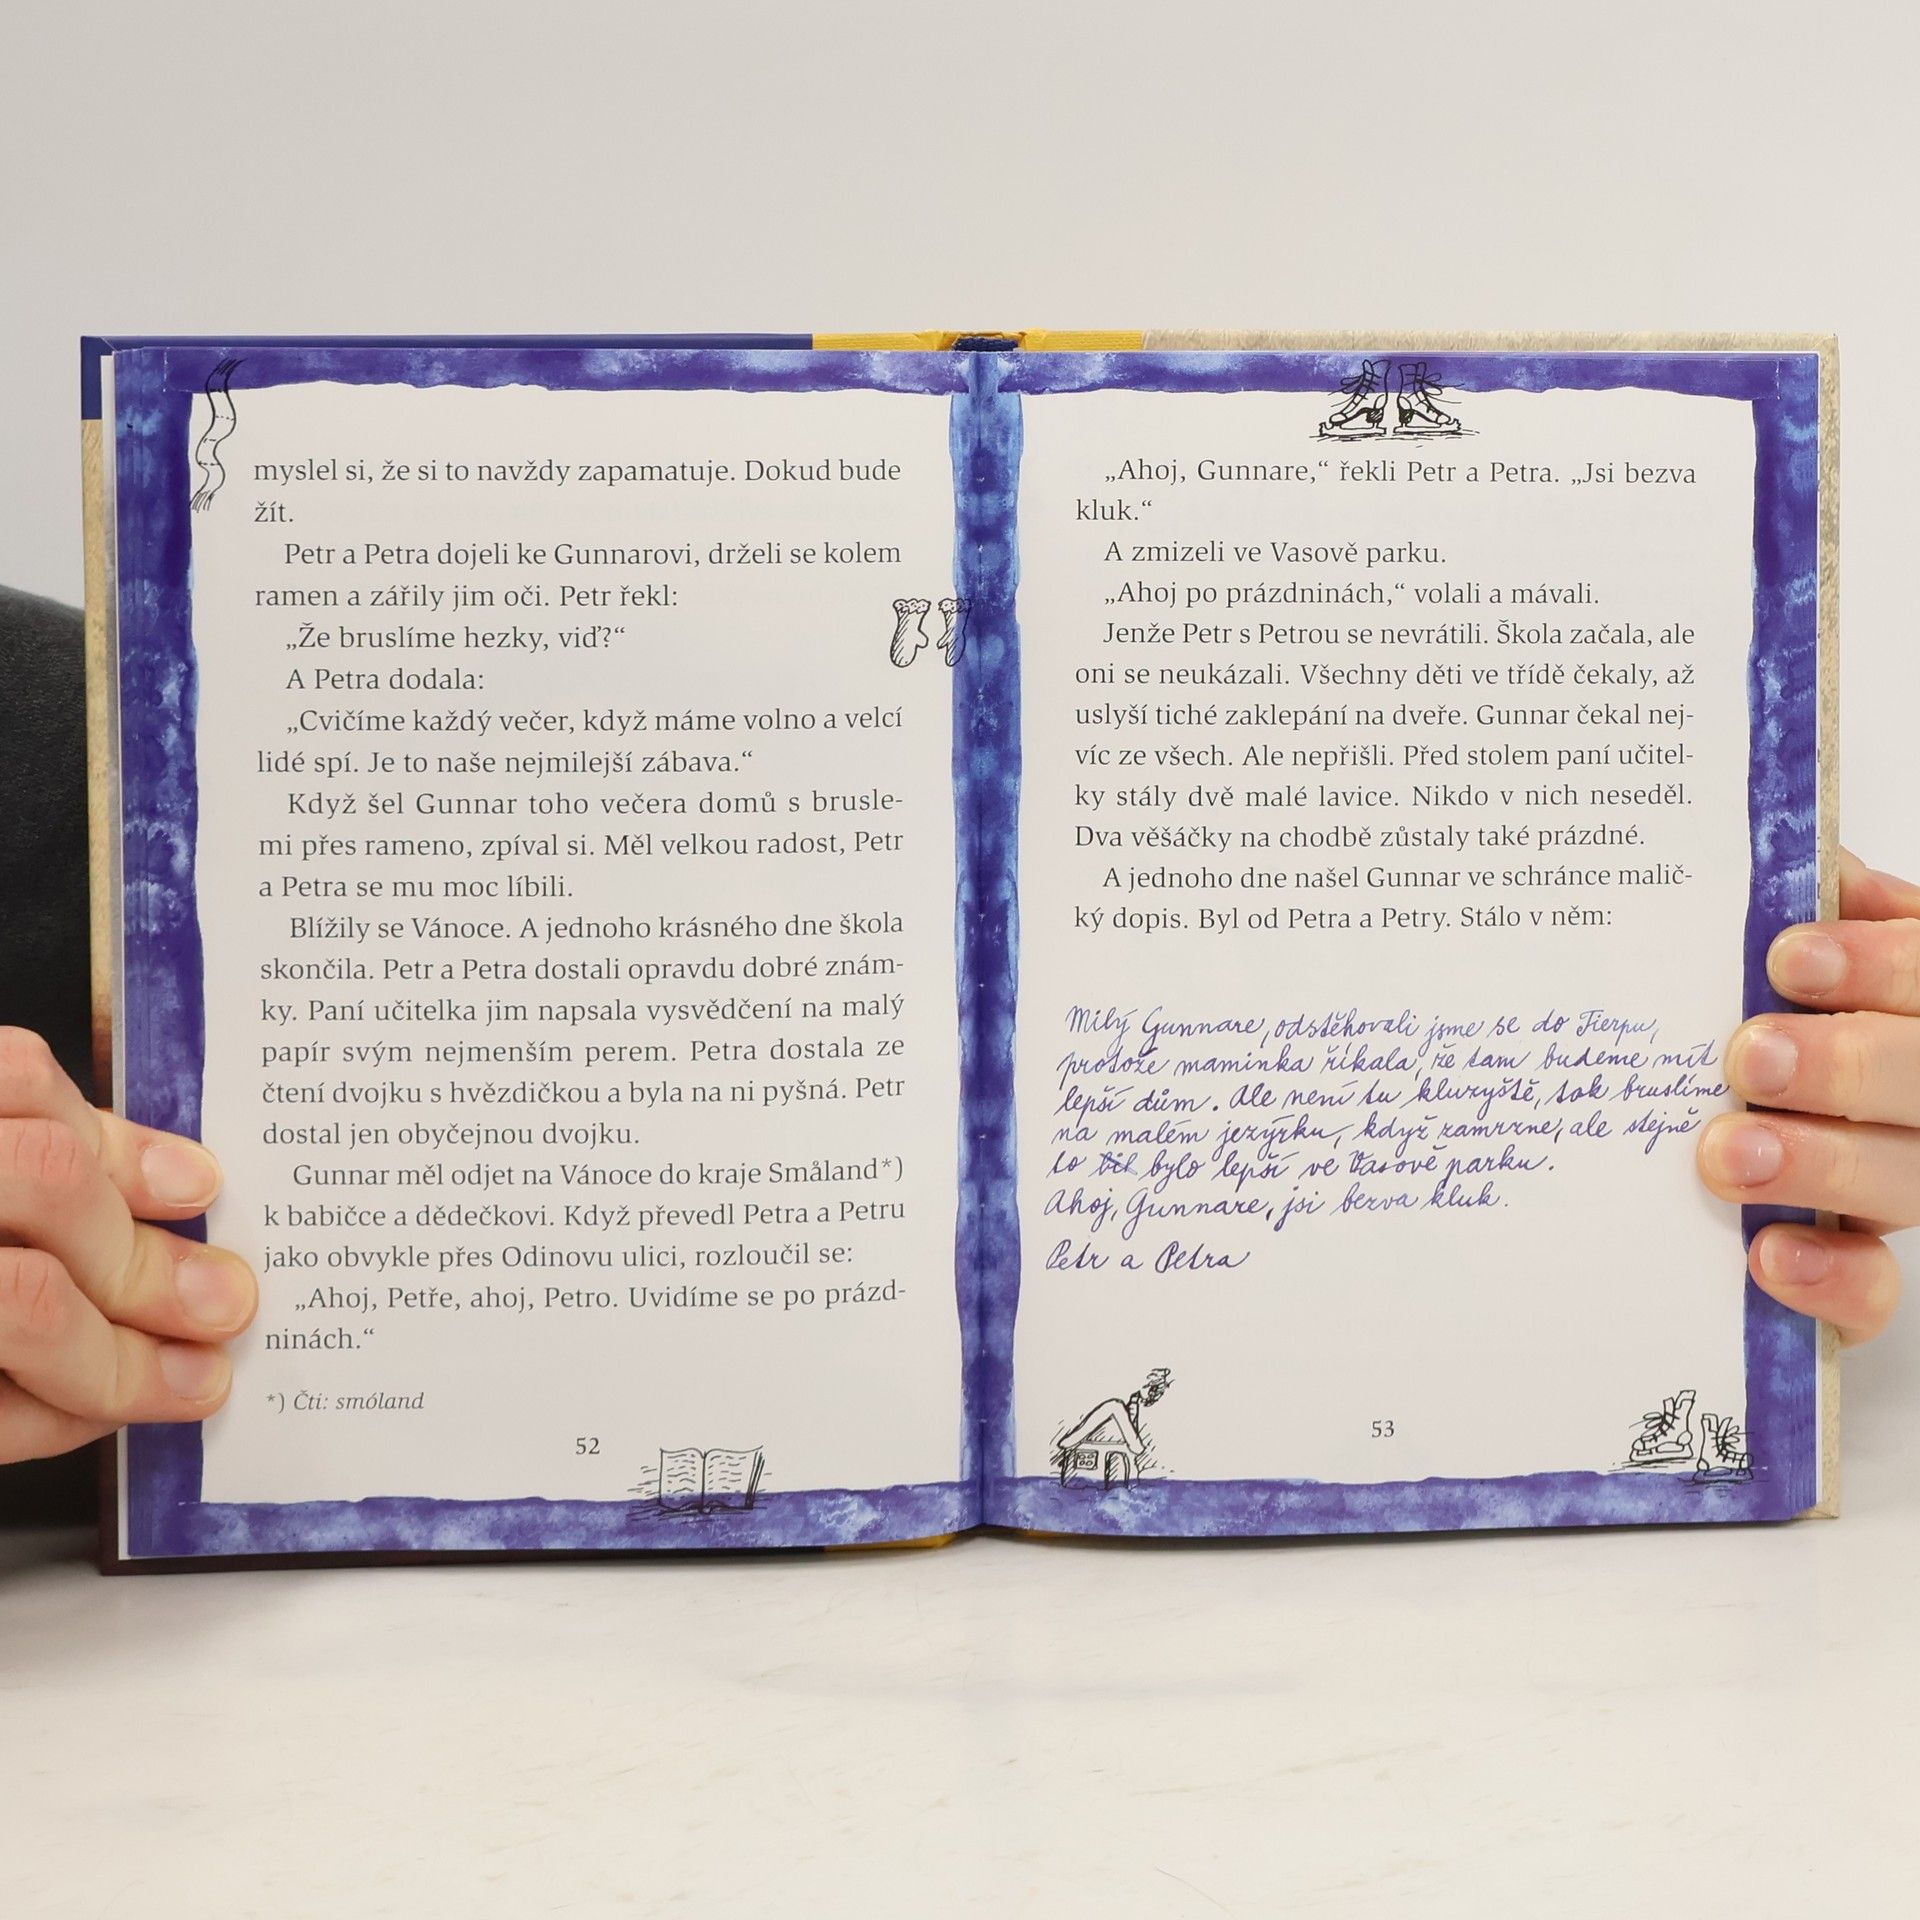 myslel si, že si to navždy zapamatuje. Dokud bude
žít.
Petr a Petra dojeli ke Gunnarovi, drželi se kolem
ramen a zářily jim oči. Petr řekl:
„Že bruslíme hezky, viď?“
A Petra dodala:
„Cvičíme každý večer, když máme volno a velcí
lidé spí. Je to naše nejmilejší zábava.“
Když šel Gunnar toho večera domů s brusle-
mi přes rameno, zpíval si. Měl velkou radost, Petr
a Petra se mu moc líbili.
Blížily se Vánoce. A jednoho krásného dne škola
skončila. Petr a Petra dostali opravdu dobré znám-
ky. Paní učitelka jim napsala vysvědčení na malý
papír svým nejmenším perem. Petra dostala ze
čtení dvojku s hvězdičkou a byla na ni pyšná. Petr
dostal jen obyčejnou dvojku.
Gunnar měl odjet na Vánoce do kraje Småland*)
k babičce a dědečkovi. Když převedl Petra a Petru
jako obvykle přes Odinovu ulici, rozloučil se:
„Ahoj, Petře, ahoj, Petro. Uvidíme se po prázd-
ninách.“
*) Čti: smóland
52
„Ahoj, Gunnare,“ řekli Petr a Petra. „Jsi bezva
kluk.“
A zmizeli ve Vasově parku.
„Ahoj po prázdninách,“ volali a mávali.
Jenže Petr s Petrou se nevrátili. Škola začala, ale
oni se neukázali. Všechny děti ve třídě čekaly, až
uslyší tiché zaklepání na dveře. Gunnar čekal nej-
víc ze všech. Ale nepřišli. Před stolem paní učitel-
ky stály dvě malé lavice. Nikdo v nich neseděl.
Dva věšáčky na chodbě zůstaly také prázdné.
A jednoho dne našel Gunnar ve schránce malič-
ký dopis. Byl od Petra a Petry. Stálo v něm:
Milý Gunnare, odstěhovali jsme se do Tierpu,
protože maminka říkala, že tam budeme mít
lepší dům. Ale není tu kluzyště, tak bruslíme
na malém jezýrku, když zamrzne, ale stejně
to bylo lepší ve Vasově parku.
Ahoj, Gunnare, jsi bezva kluk.
Petr a Petra
53